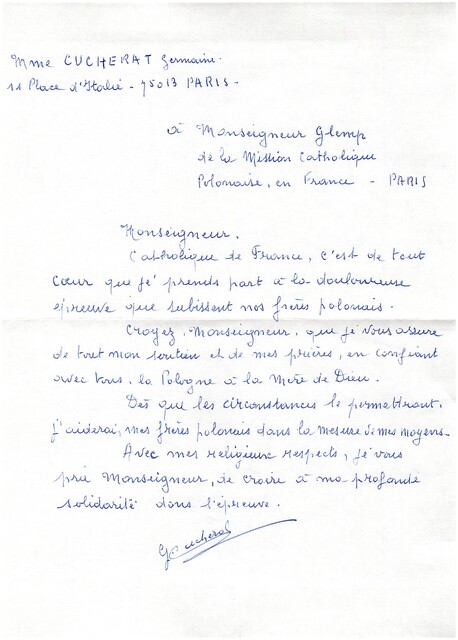 Mme CUCHERAT Germaine.
11 Place d'Italie - 75013 PARIS -
à Monseigneur Glemp
de la Mission Catholique
Polonaise, en France - PARIS
Monseigneur.
Catholique de France, c'est de tout
cœur que je prends part à la douloureuse
épreuve que subissent nos frères polonais.
Croyez, Monseigneur, que je vous assure
de tout mon soutien et de mes prières, en confiant
avec vous, la Pologne à la Mère de Dieu.
Dès que les circonstances le permettront,
j'aiderai, mes frères polonais dans la mesure de mes moyens.
Avec mes religieux respects, je vous
prie Monseigneur, de croire à ma profonde
solidarité dans l'épreuve.
G Cucherat